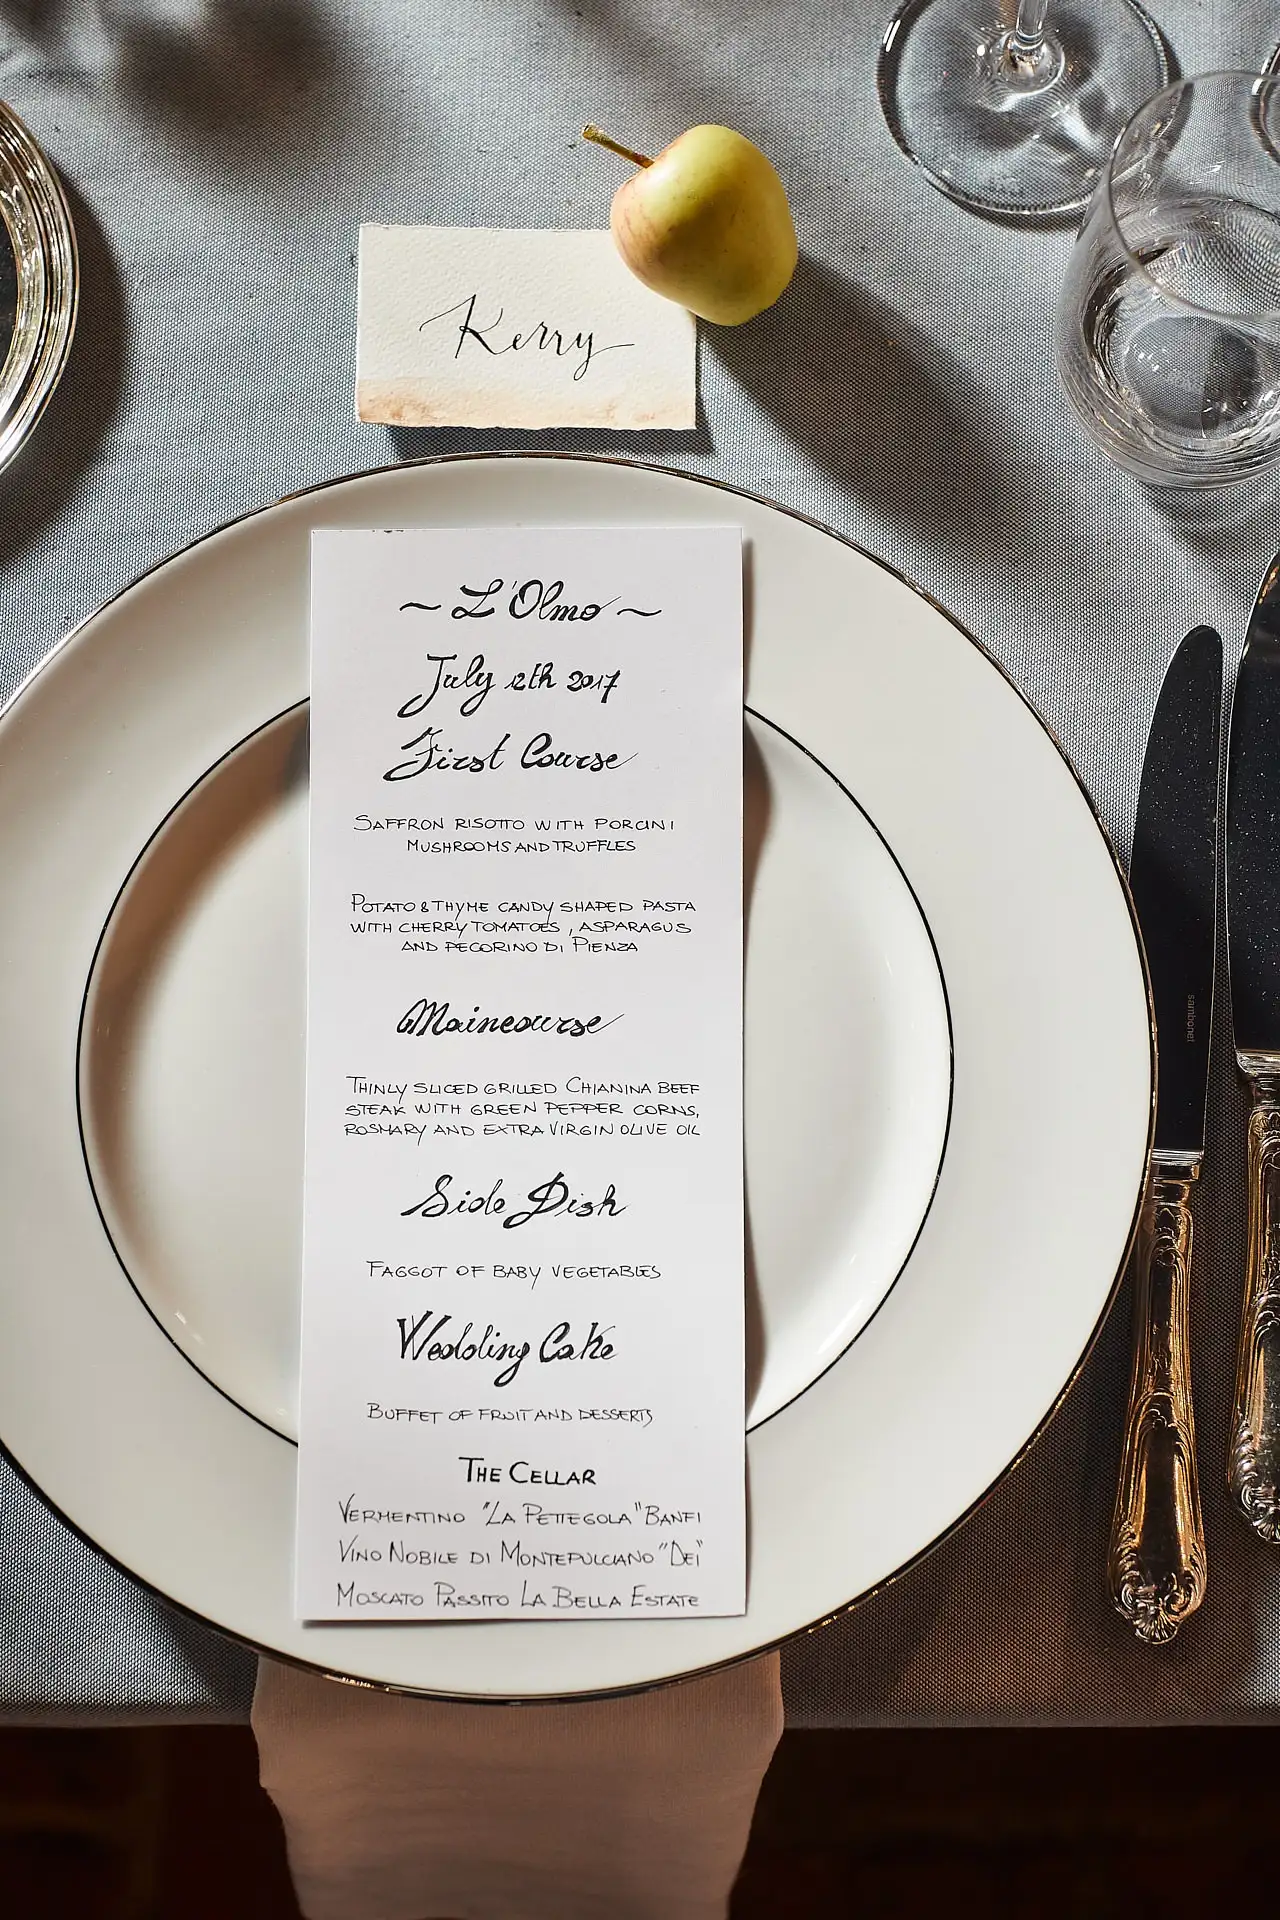 Kerry
~ L'Olmo ~
July 12th 2017
First Course
SAFFRON RISOTTO WITH PORCINI
MUSHROOMS AND TRUFFLES
POTATO & THYME CANDY SHAPED PASTA
WITH CHERRY TOMATOES, ASPARAGUS
AND PECORINO DI PIENZA
Maincourse
THINLY SLICED GRILLED CHIANINA BEEF
STEAK WITH GREEN PEPPER CORNS,
ROSMARY AND EXTRA VIRGIN OLIVE OIL
Side Dish
FAGGOT OF BABY VEGETABLES
Wedding Cake
BUFFET OF FRUIT AND DESSERTS
THE CELLAR
VERMENTINO "LA PETTEGOLA" BANFI
VINO NOBILE DI MONTEPULCIANO "DEI"
MOSCATO PASSITO LA BELLA ESTATE
sambonet